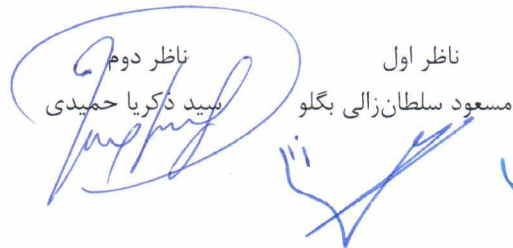 ناظر اول
مسعود سلطان‌زالی بگلو
ناظر دوم
سید ذکریا حمیدی